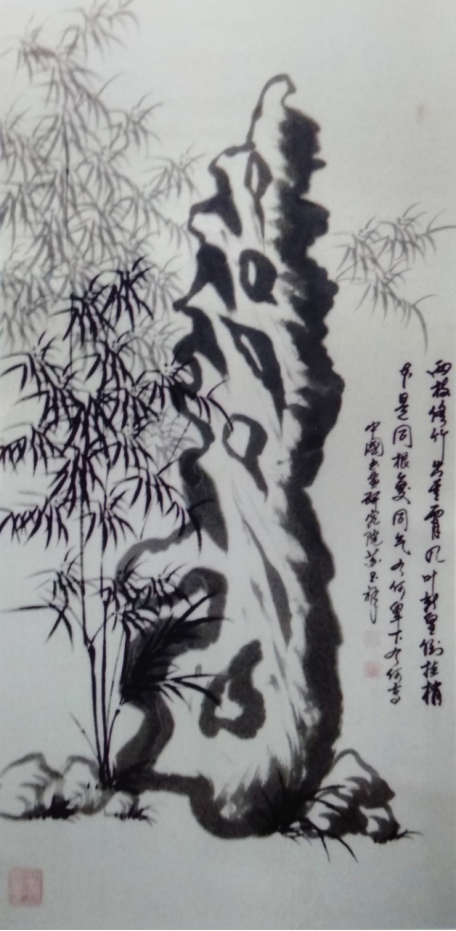 两枝修竹出重霄几叶新篁倒挂梢
本是同根复同气有何卑下有何高
中國书画研究院苏玉